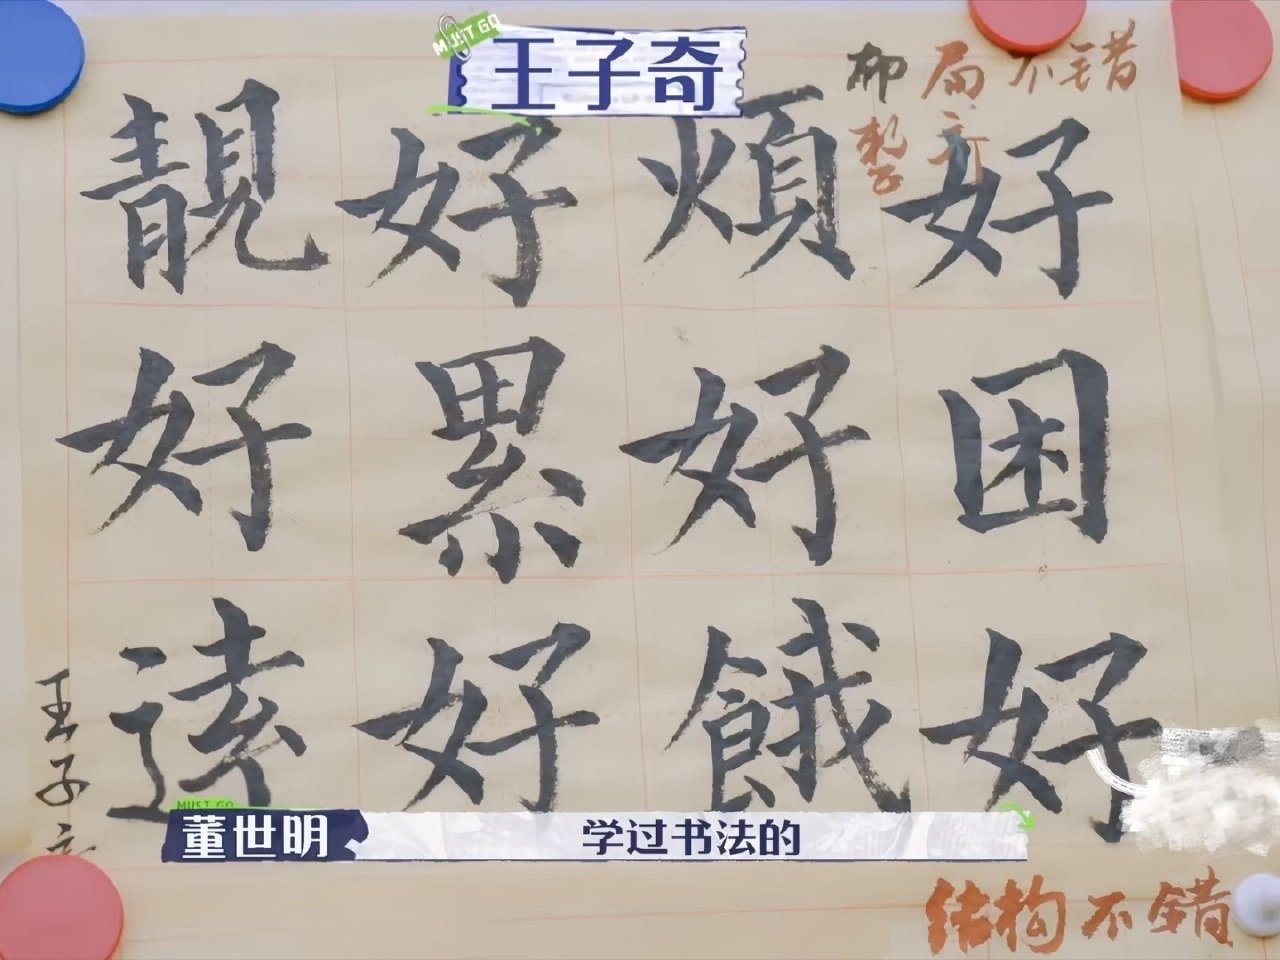 MUST GO
王子奇
布局不错
整齐
好困好
煩好餓
好累好
靚好遠
王子奇
结构不错
MUST GO
董世明
学过书法的